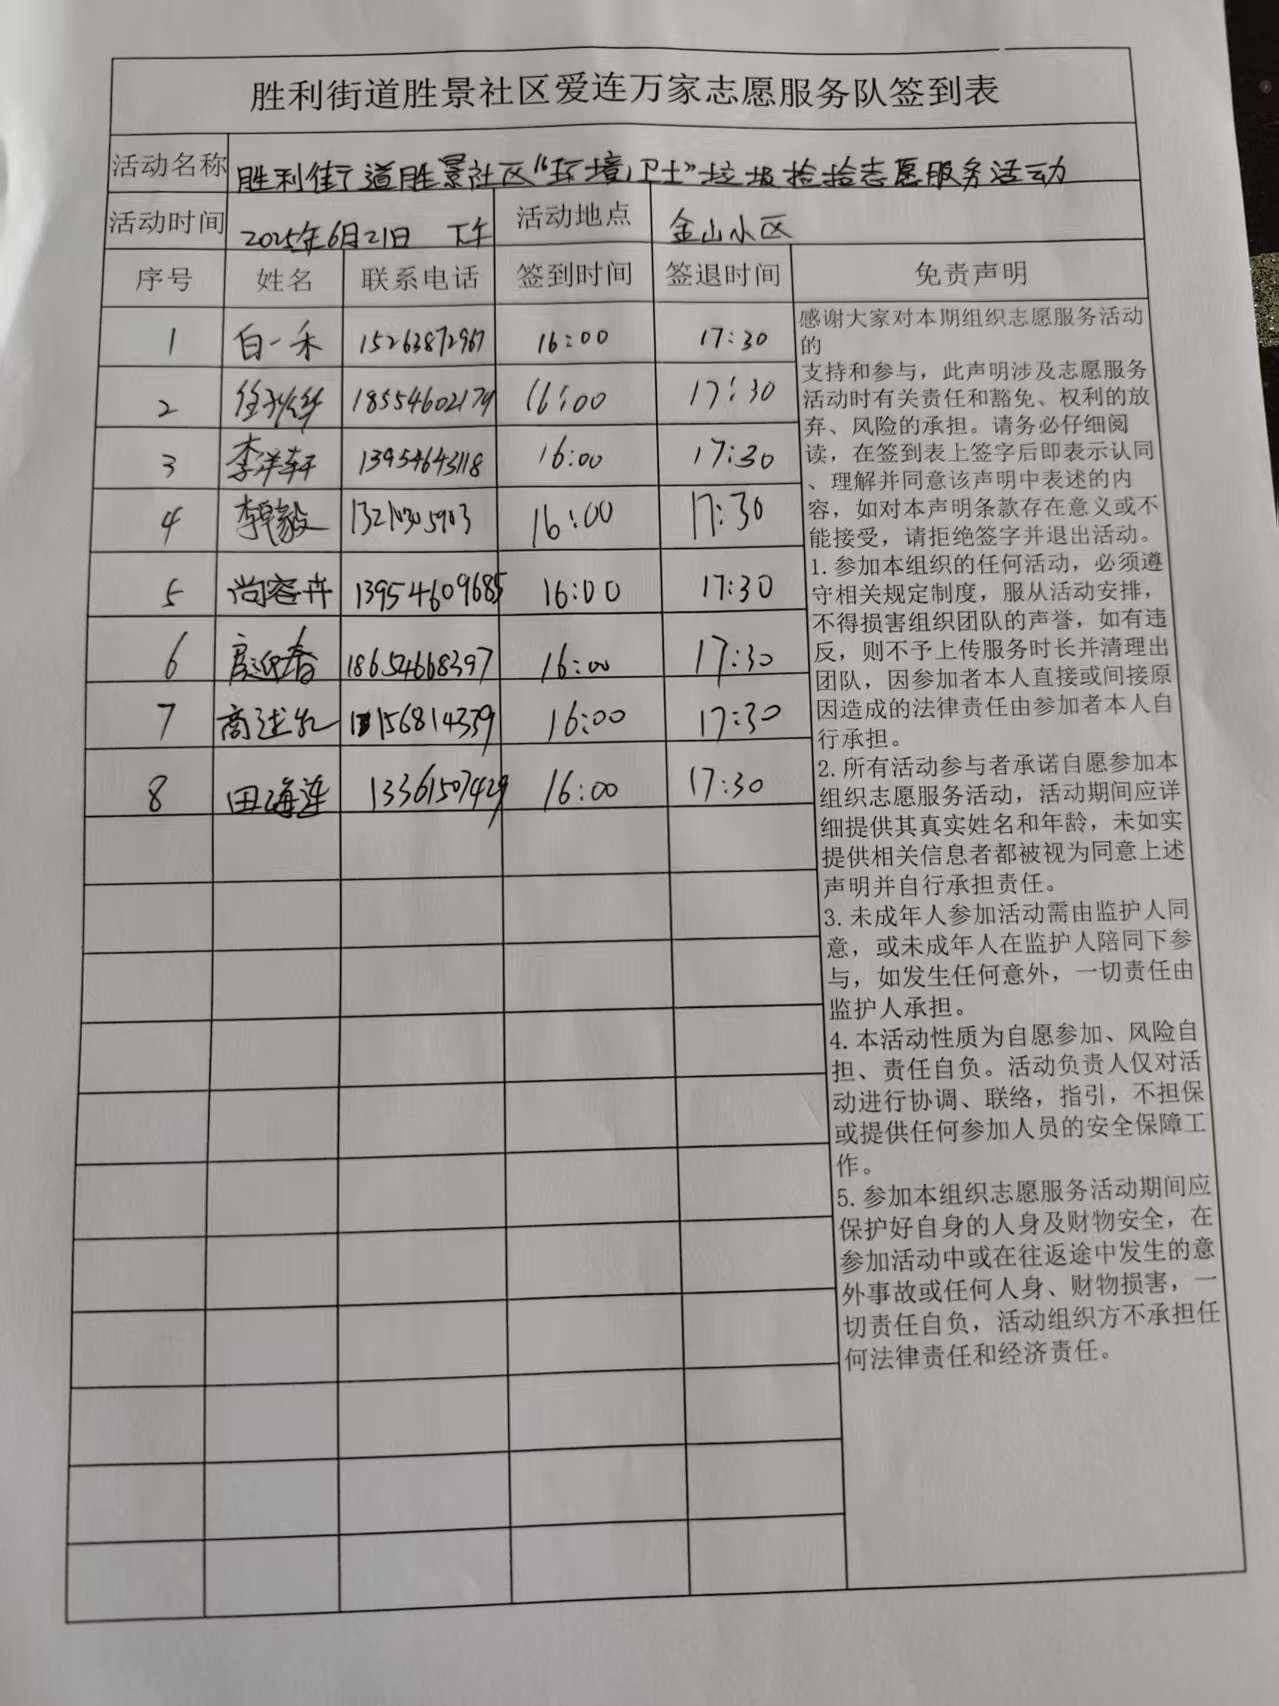 胜利街道胜景社区爱连万家志愿服务队签到表
活动名称 胜利街道胜景社区“环境卫士”垃圾捡拾志愿服务活动
活动时间 2025年6月21日 下午 活动地点 金山小区
序号 姓名 联系电话 签到时间 签退时间 免责声明
1 白一禾 15263872967 16:00 17:30
2 18554602179 16:00 17:30
3 李洋轩 13954643118 16:00 17:30
4 李毅 16:00 17:30
5 尚容卉 13954609685 16:00 17:30
6 迎春 18654668397 16:00 17:30
7 16:00 17:30
8 田海莲 13361507429 16:00 17:30
感谢大家对本期组织志愿服务活动
的
支持和参与，此声明涉及志愿服务
活动时有关责任和豁免、权利的放
弃、风险的承担。请务必仔细阅
读，在签到表上签字后即表示认同
、理解并同意该声明中表述的内
容，如对本声明条款存在意义或不
能接受，请拒绝签字并退出活动。
1. 参加本组织的任何活动，必须遵
守相关规定制度，服从活动安排，
不得损害组织团队的声誉，如有违
反，则不予上传服务时长并清理出
团队，因参加者本人直接或间接原
因造成的法律责任由参加者本人自
行承担。
2. 所有活动参与者承诺自愿参加本
组织志愿服务活动，活动期间应详
细提供其真实姓名和年龄，未如实
提供相关信息者都被视为同意上述
声明并自行承担责任。
3. 未成年人参加活动需由监护人同
意，或未成年人在监护人陪同下参
与，如发生任何意外，一切责任由
监护人承担。
4. 本活动性质为自愿参加、风险自
担、责任自负。活动负责人仅对活
动进行协调、联络，指引，不担保
或提供任何参加人员的安全保障工
作。
5. 参加本组织志愿服务活动期间应
保护好自身的人身及财物安全，在
参加活动中或在往返途中发生的意
外事故或任何人身、财物损害，一
切责任自负，活动组织方不承担任
何法律责任和经济责任。